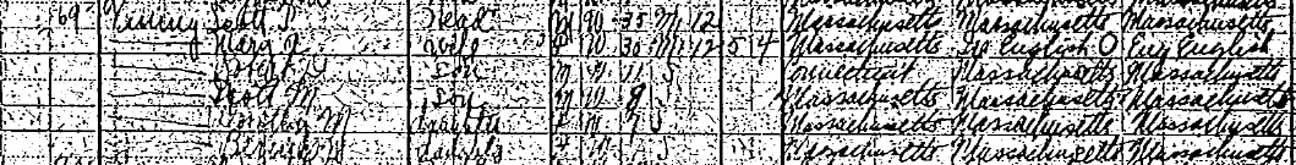 69 Scott D Head M W 35 M 12 Massachusetts Massachusetts Massachusetts
Mary J Wife F W 30 M 12 5 4 Massachusetts English Eng English
Son M W 11 S Connecticut Massachusetts Massachusetts
Scott M Son M W 9 S Massachusetts Massachusetts Massachusetts
Dorothy M Daughter F W 7 S Massachusetts Massachusetts Massachusetts
Daughter F W 5 Massachusetts Massachusetts Massachusetts